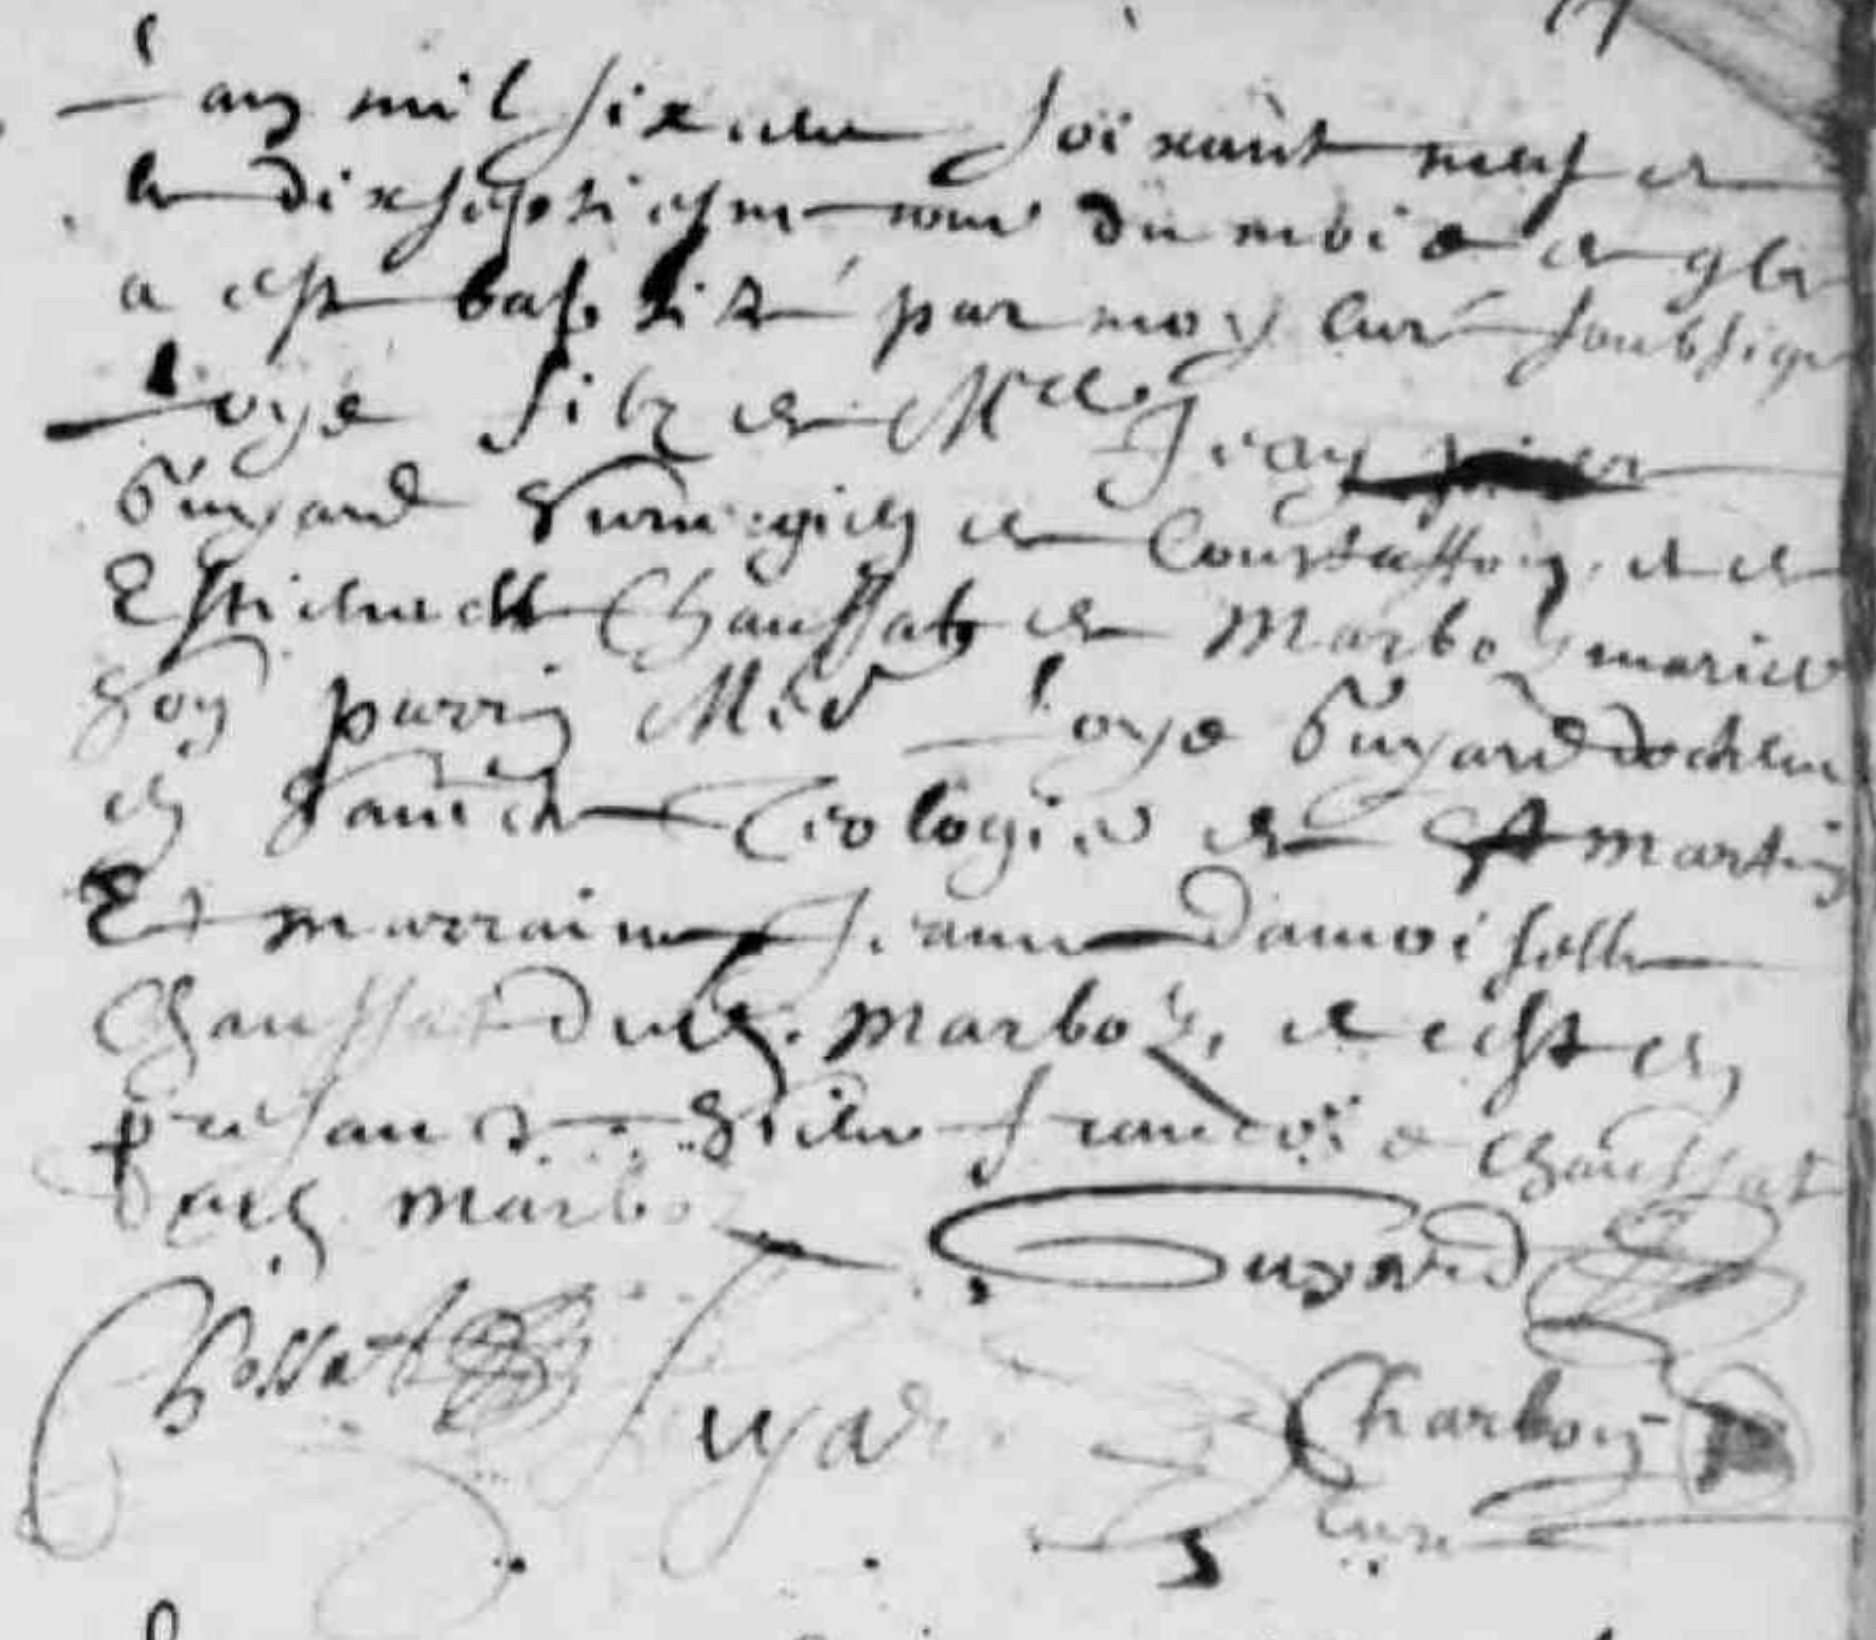 L'an mil six cens soixant neuf et
le dixseptiesme iour du mois de 9bre
a esté baptizé par moy curé soubsigné
Loys filz de Me Jean
Guyard Sirurgien de Coustansson, et de
Estiennette Chaussat de Marboz mariés
son parrin Mre Loys Guyard docteur
en Saincte Teologie de St Martin
Et marraine Jeanne damoiselle
Chaussat dud. Marboz, et cest en
presance Sieur françois Chaussat
dud. Marboz
Guyard
Chossat
Guyard
Charbon
Curé